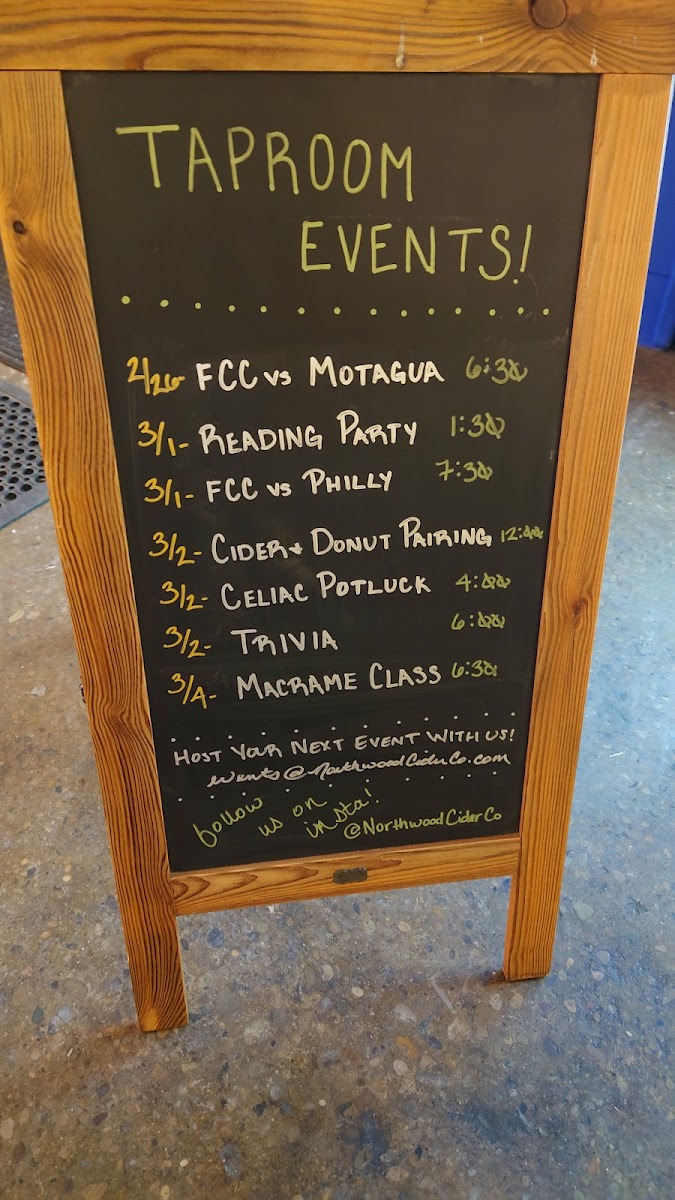 TAPROOM
EVENTS!
2/26- FCC vs MOTAGUA 6:30
3/1- READING PARTY 1:30
3/1- FCC vs PHILLY 7:30
3/2- CIDER + DONUT PAIRING 12:00
3/2- CELIAC POTLUCK 4:00
3/2- TRIVIA 6:00
3/4- MACRAME CLASS 6:30
HOST YOUR NEXT EVENT WITH US!
events@NorthwoodCiderCo.com
follow us on insta!
@NorthwoodCiderCo